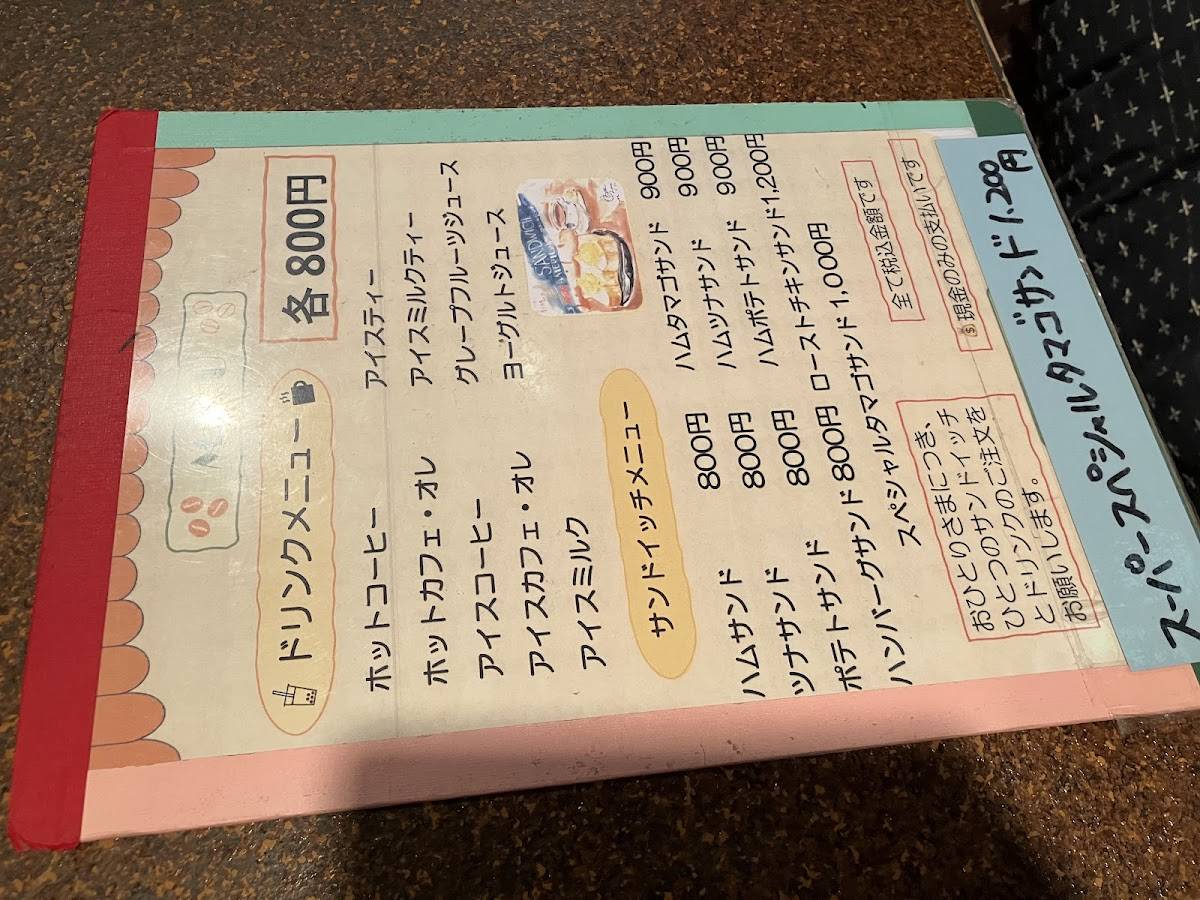 MENU
ドリンクメニュー
各800円
ホットコーヒー
ホットカフェ・オレ
アイスコーヒー
アイスカフェ・オレ
アイスミルク
アイスティー
アイスミルクティー
グレープフルーツジュース
ヨーグルトジュース
SANDWICH
サンドイッチメニュー
ハムサンド 800円
ツナサンド 800円
ポテトサンド 800円
ハンバーグサンド 800円
ハムタマゴサンド 900円
ハムツナサンド 900円
ハムポテトサンド 900円
ローストチキンサンド 1,200円
スペシャルタマゴサンド 1,000円
おひとりさまにつき、
ひとつのサンドイッチ
とドリンクのご注文を
お願いします。
全て税込金額です
現金のみの支払いです
スーパースペシャルタマゴサンド 1.200円